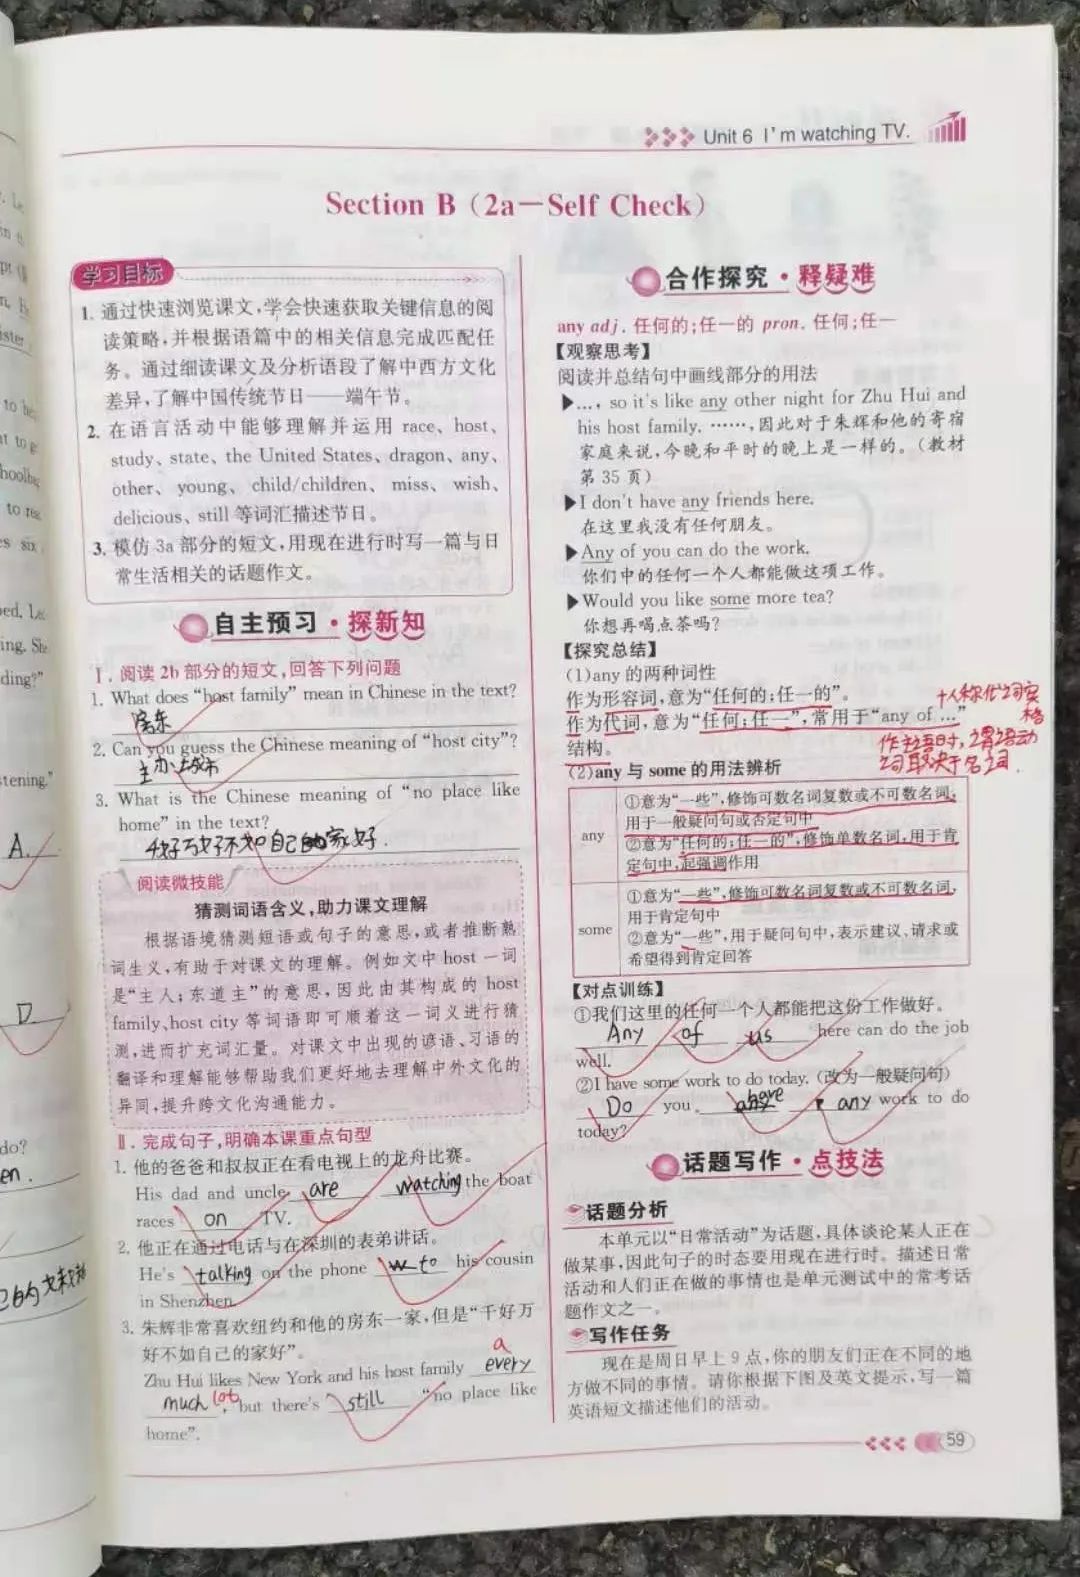 Unit 6 I'm watching TV.
Section B (2a—Self Check)
学习目标
1. 通过快速浏览课文,学会快速获取关键信息的阅
读策略,并根据语篇中的相关信息完成匹配任
务。通过细读课文及分析语段了解中西方文化
差异,了解中国传统节日——端午节。
2. 在语言活动中能够理解并运用 race、host、
study、state、the United States、dragon、any、
other、young、child/children、miss、wish、
delicious、still 等词汇描述节日。
3. 模仿 3a 部分的短文,用现在进行时写一篇与日
常生活相关的话题作文。
自主预习·探新知
Ⅰ. 阅读 2b 部分的短文,回答下列问题
1. What does “host family” mean in Chinese in the text?
房东
2. Can you guess the Chinese meaning of “host city”?
主办城市
3. What is the Chinese meaning of “no place like
home” in the text?
千好万好不如自己的家好.
阅读微技能
猜测词语含义,助力课文理解
根据语境猜测短语或句子的意思,或者推断熟
词生义,有助于对课文的理解。例如文中 host 一词
是“主人;东道主”的意思,因此由其构成的 host
family、host city 等词语即可顺着这一词义进行猜
测,进而扩充词汇量。对课文中出现的谚语、习语的
翻译和理解能够帮助我们更好地去理解中外文化的
异同,提升跨文化沟通能力。
Ⅱ. 完成句子,明确本课重点句型
1. 他的爸爸和叔叔正在看电视上的龙舟比赛。
His dad and uncle are watching the boat
races on TV.
2. 他正在通过电话与在深圳的表弟讲话。
He's talking on the phone to his cousin
in Shenzhen.
3. 朱辉非常喜欢纽约和他的房东一家,但是“千好万
好不如自己的家好”。
a
Zhu Hui likes New York and his host family every
much lot, but there's still “no place like
home”.
合作探究·释疑难
any adj. 任何的;任一的 pron. 任何;任一
【观察思考】
阅读并总结句中画线部分的用法
▶..., so it's like any other night for Zhu Hui and
his host family. ……,因此对于朱辉和他的寄宿
家庭来说,今晚和平时的晚上是一样的。(教材
第 35 页)
▶I don't have any friends here.
在这里我没有任何朋友。
▶Any of you can do the work.
你们中的任何一个人都能做这项工作。
▶Would you like some more tea?
你想再喝点茶吗?
【探究总结】
(1)any 的两种词性
作为形容词,意为“任何的;任一的”。
+人称代词宾格
作为代词,意为“任何;任一”,常用于“any of ...”
结构。
作主语时,谓语动
词取决于名词.
(2)any 与 some 的用法辨析
any
①意为“一些”,修饰可数名词复数或不可数名词,
用于一般疑问句或否定句中
②意为“任何的;任一的”,修饰单数名词,用于肯
定句中,起强调作用
some
①意为“一些”,修饰可数名词复数或不可数名词,
用于肯定句中
②意为“一些”,用于疑问句中,表示建议、请求或
希望得到肯定回答
【对点训练】
①我们这里的任何一个人都能把这份工作做好。
Any of us here can do the job
well.
②I have some work to do today. (改为一般疑问句)
Do you have any work to do
today?
话题写作·点技法
话题分析
本单元以“日常活动”为话题,具体谈论某人正在
做某事,因此句子的时态要用现在进行时。描述日常
活动和人们正在做的事情也是单元测试中的常考话
题作文之一。
写作任务
现在是周日早上 9 点,你的朋友们正在不同的地
方做不同的事情。请你根据下图及英文提示,写一篇
英语短文描述他们的活动。
59